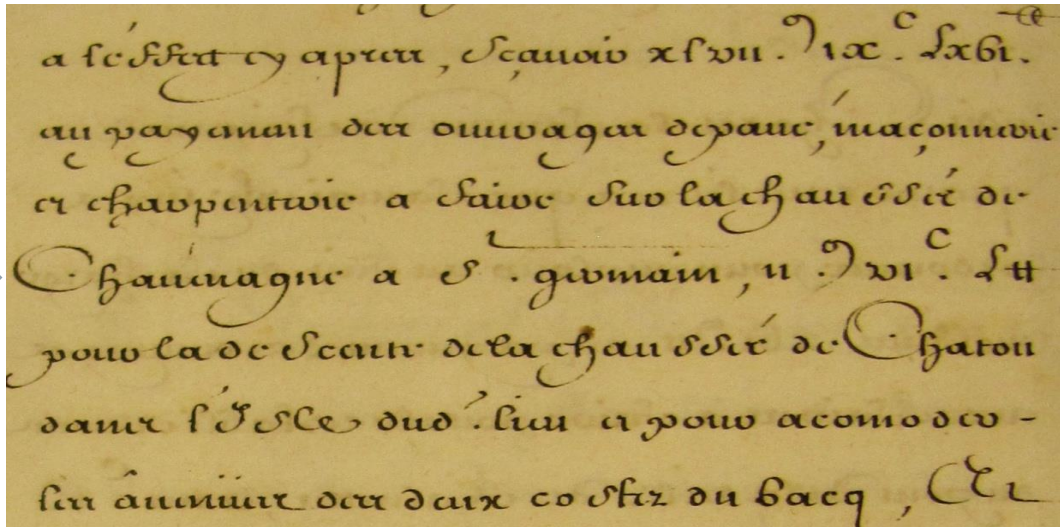 a l'éffect cy apres, sçavoir xlvii.^m ix.^c Lxvi.^tt
au payement des ouvrages de pavé, maçonnerie
et charpenterie a faire sur la chaussée de
Charlemagne a S^t. germain, ii.^m vi.^c L^tt
pour la descente de la chaussée de Chatou
dans l'Isle dud'. lieu et pour acomoder
les avenues des deux costez du bacq, Et